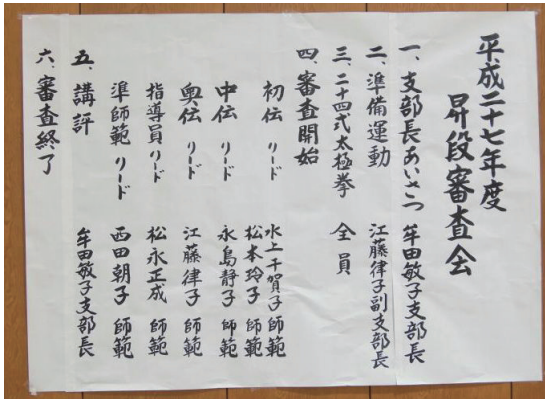 平成二十七年度
昇段審査会
一、支部長あいさつ 牟田敏子支部長
二、準備運動 江藤律子副支部長
三、二十四式太極拳 全員
四、審査開始
初伝 リード 水上千賀子師範
松本玲子 師範
中伝 リード 永島静子 師範
奥伝 リード 江藤律子 師範
指導員リード 松永正成 師範
準師範 リード 西田朝子 師範
五、講評 牟田敏子支部長
六、審査終了